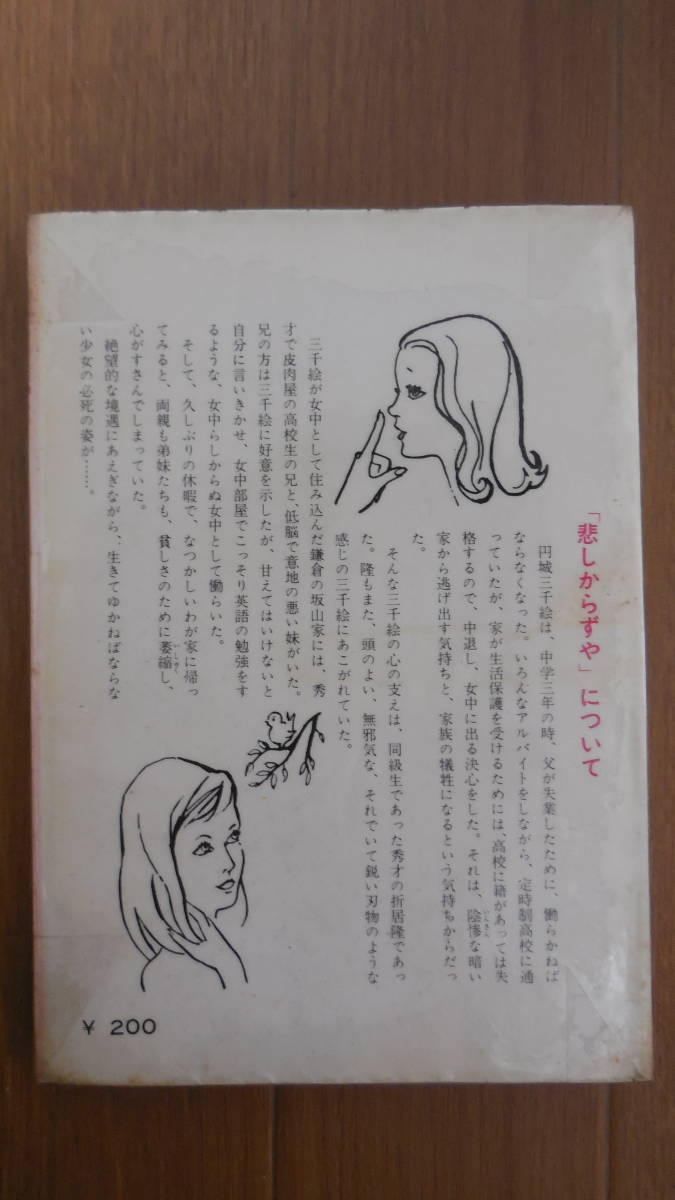 「悲しからずや」について
円城三千絵は、中学三年の時、父が失業したために、働らかねば
ならなくなった。いろんなアルバイトをしながら、定時制高校に通
っていたが、家が生活保護を受けるためには、高校に籍があっては失
格するので、中退し、女中に出る決心をした。それは、陰惨な暗い
家から逃げ出す気持ちと、家族の犠牲になるという気持ちからだっ
た。
そんな三千絵の心の支えは、同級生であった秀才の折居隆であっ
た。隆もまた、頭のよい、無邪気な、それでいて鋭い刃物のような
感じの三千絵にあこがれていた。
三千絵が女中として住み込んだ鎌倉の坂山家には、秀
才で皮肉屋の高校生の兄と、低脳で意地の悪い妹がいた。
兄の方は三千絵に好意を示したが、甘えてはいけないと
自分に言いきかせ、女中部屋でこっそり英語の勉強をす
るような、女中らしからぬ女中として働らいた。
そして、久しぶりの休暇で、なつかしいわが家に帰っ
てみると、両親も弟妹たちも、貧しさのために萎縮し、
心がすさんでしまっていた。
絶望的な境遇にあえぎながら、生きてゆかねばならな
い少女の必死の姿が……。
¥ 200